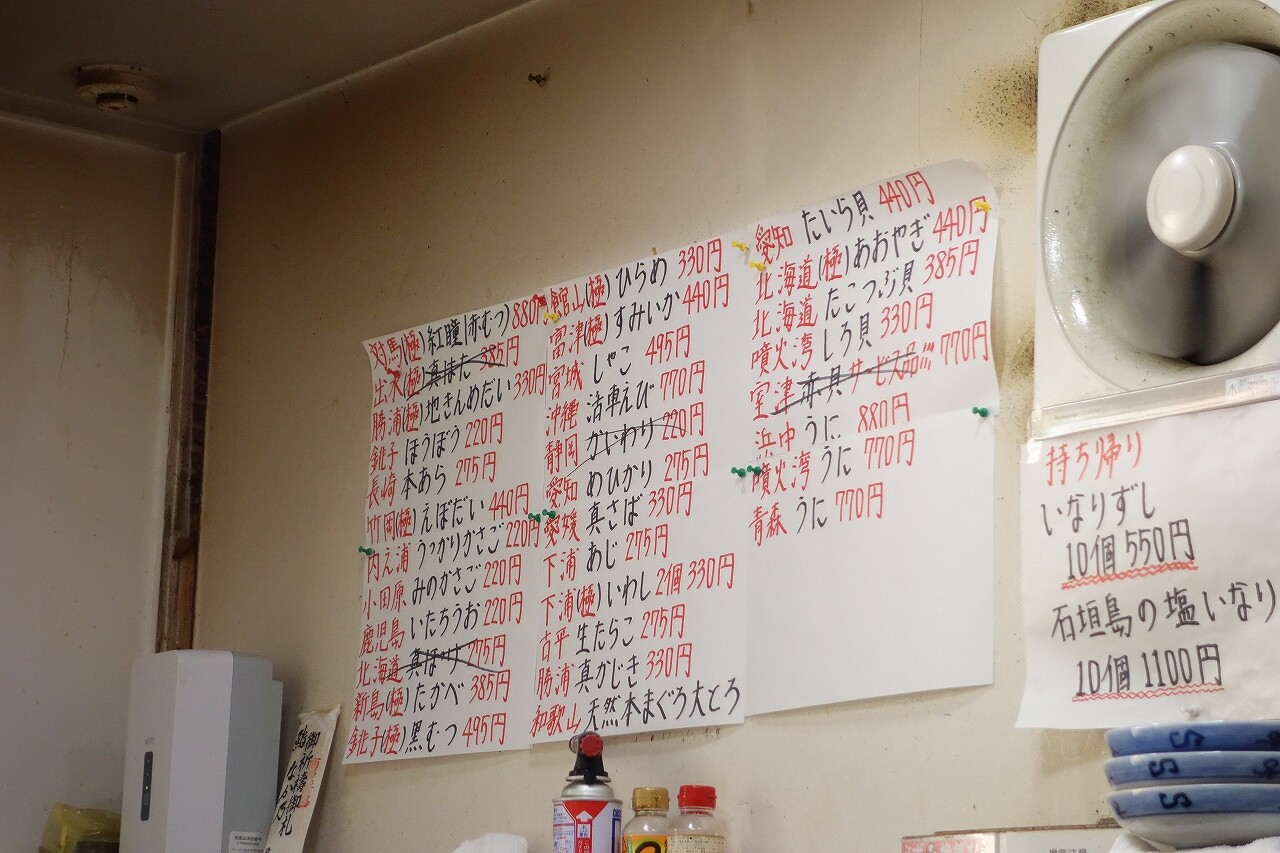 対馬(極)紅瞳(赤むつ)880円
出水(極)真はた 385円
勝浦(極)地きんめだい 330円
銚子 ほうぼう 220円
長崎 本あら 275円
竹岡(極)えぼだい 440円
内之浦 うっかりかさご 220円
小田原 みのかさご 220円
鹿児島 いたちうお 220円
北海道 真ほっけ 275円
新島(極)たかべ 385円
銚子(極)黒むつ 495円
館山(極)ひらめ 330円
富津(極)すみいか 440円
宮城 しゃこ 495円
沖縄 活車えび 770円
静岡 かいわり 220円
愛知 めひかり 275円
愛媛 真さば 330円
下浦 あじ 275円
下浦(極)いわし 2個 330円
古平 生たらこ 275円
勝浦 真かじき 330円
和歌山 天然本まぐろ大とろ
愛知 たいら貝 440円
北海道(極)あおやぎ 440円
北海道 たこつぶ貝 385円
噴火湾 しろ貝 330円
室津 赤貝 サービス品 770円
浜中 うに 880円
噴火湾 うに 770円
青森 うに 770円
持ち帰り
いなりずし
10個 550円
石垣島の塩いなり
10個 1100円